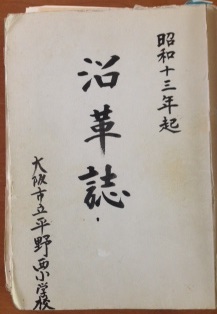 昭和十三年起
沿革誌
大阪市立平野西小学校